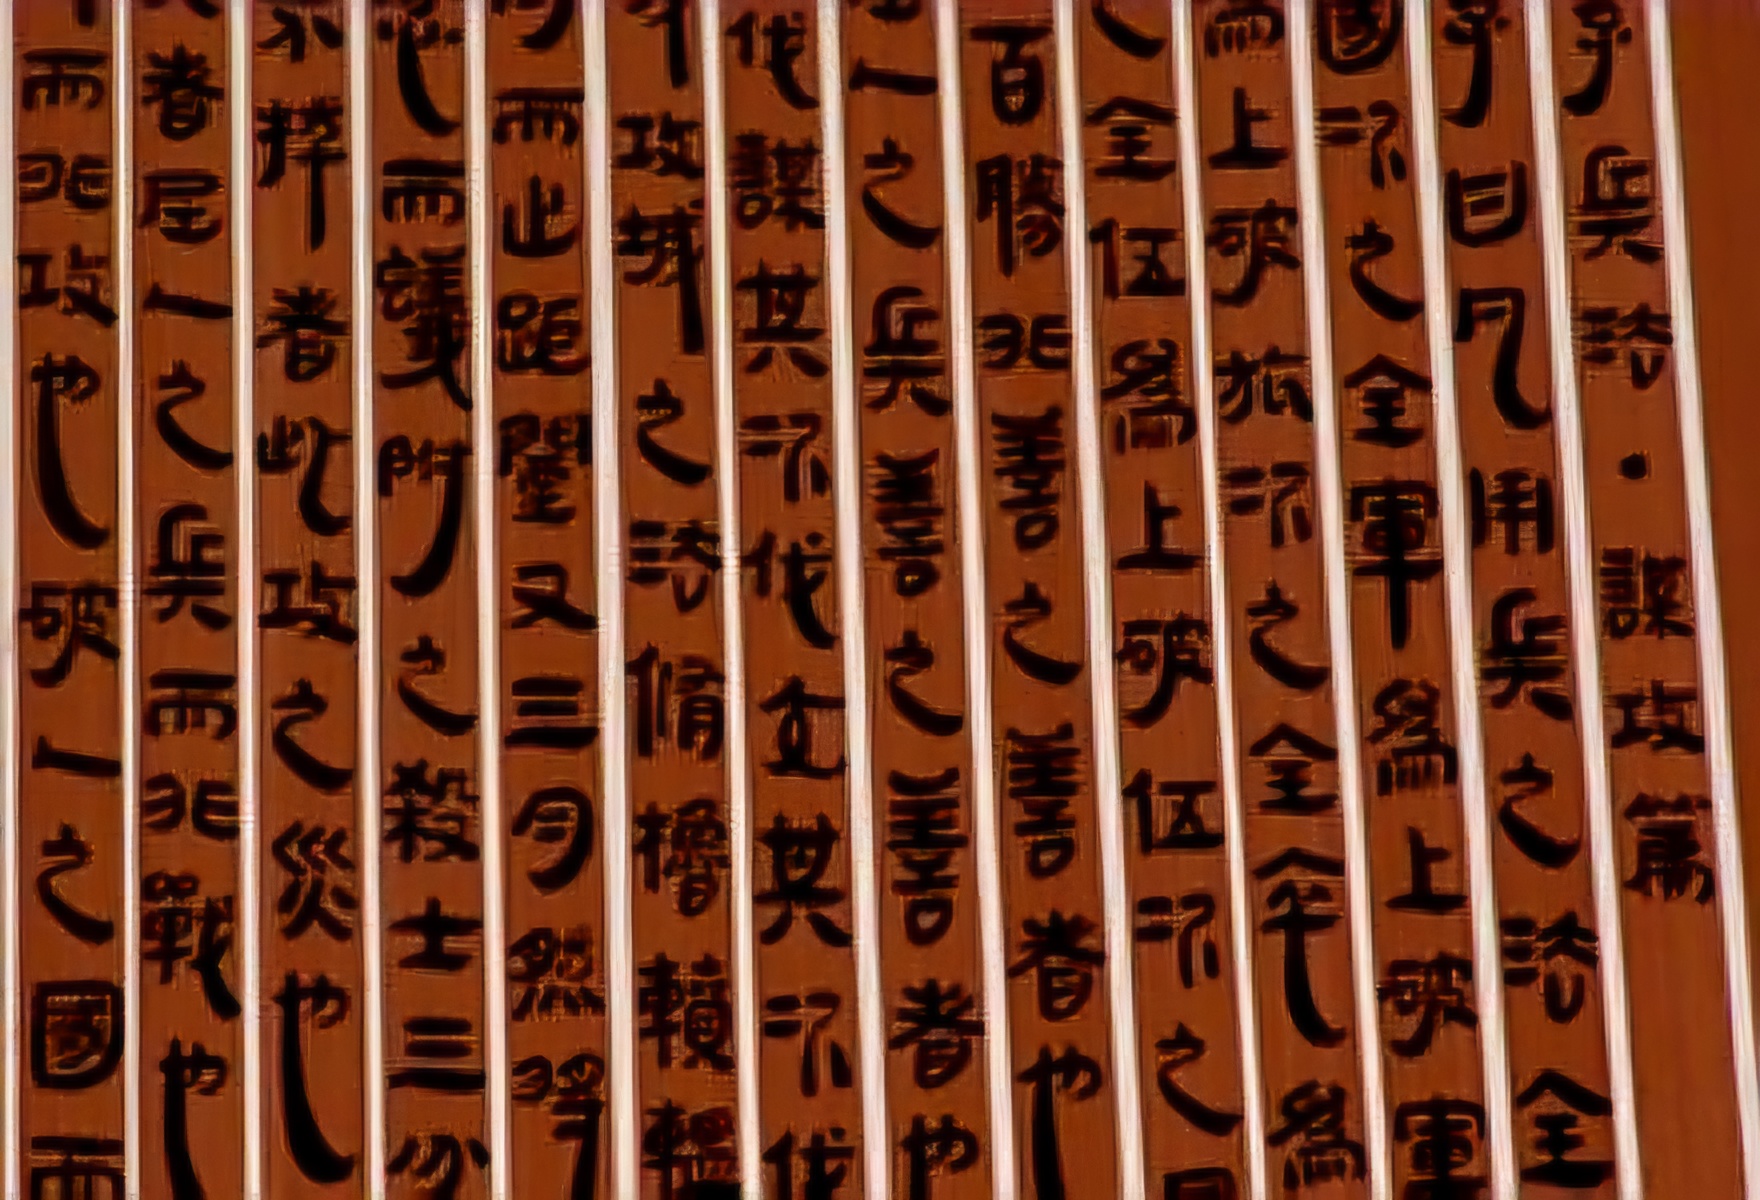 子兵法·謀攻篇
子曰凡用兵之法全
國次之全軍爲上破軍
爲上破旅次之全卒爲
之全伍爲上破伍次之
百勝非善之善者也
人之兵善之善者也
伐謀其次伐交其次伐
攻城之法脩櫓轒轀
月而止距闉又三月然將
忿而蟻附之殺士三分
不拔者此攻之災也
者屈人之兵而非戰也
而非攻也破人之國而